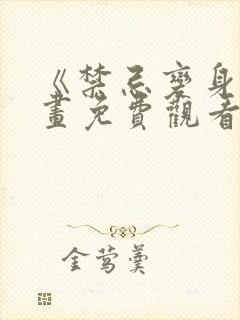 《禁忌變身
畫免費觀看
金鶯羹